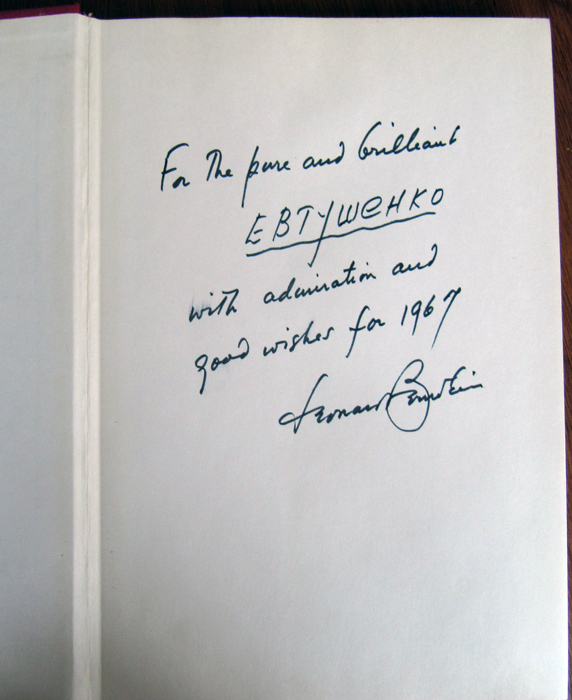 For The pure and brilliant
ЕВТУШЕНКО
with admiration and
good wishes for 1967
Leonard Bernstein